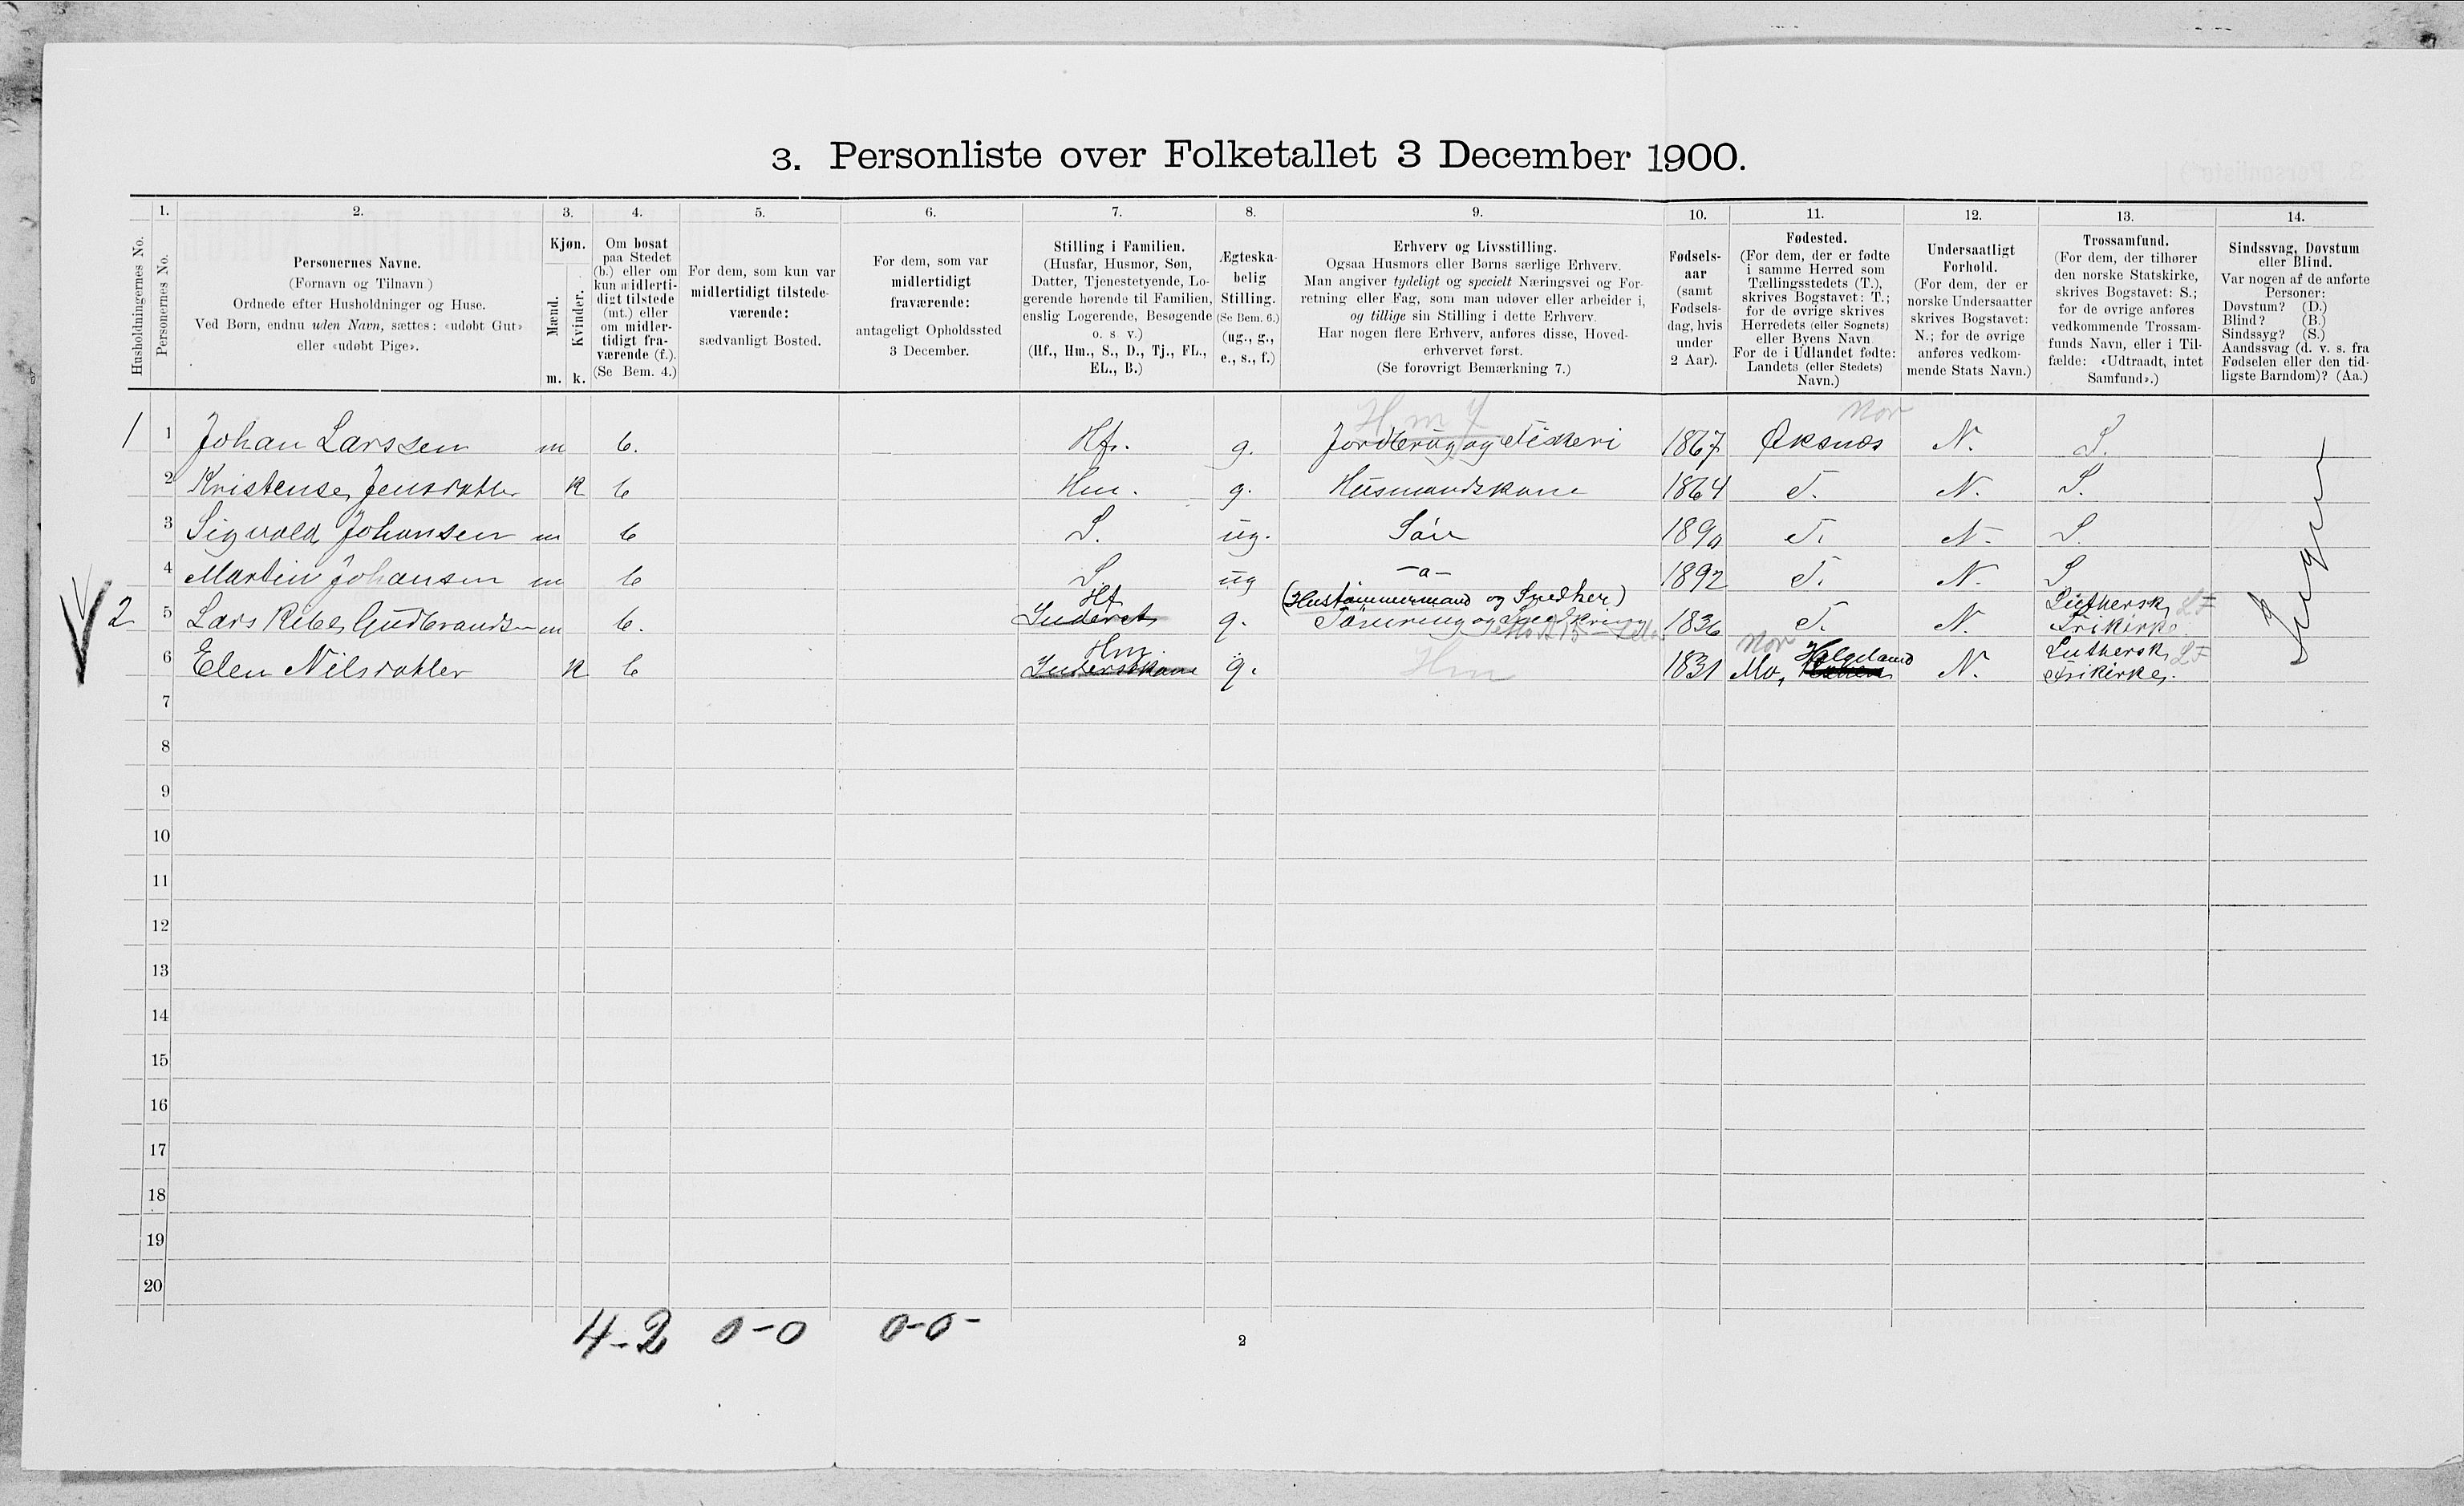 3. Personliste over Folketallet 3 December 1900.
Husholdningernes No.
1.
Personernes No.
2.
Personernes Navne.
(Fornavn og Tilnavn )
Ordnede efter Husholdninger og Huse.
Ved Børn, endnu uden Navn, sættes: «udøbt Gut»
eller «udøbt Pige».
3.
Kjøn.
Mænd.
Kvinder.
m. k.
4.
Om bosat
paa Stedet
(b.) eller om
kun midlerti-
digt tilstede
(mt.) eller
om midler-
tidigt fra-
værende (f.).
(Se Bem. 4.)
5.
For dem, som kun var
midlertidigt tilstede-
værende:
sædvanligt Bosted.
6.
For dem, som var
midlertidigt
fraværende:
antageligt Opholdssted
3 December.
7.
Stilling i Familien.
(Husfar, Husmor, Søn,
Datter, Tjenestetyende, Lo-
gerende hørende til Familien,
enslig Logerende, Besøgende
o. s. v.)
(Hf., Hm., S., D., Tj., FL.,
EL., B.)
8.
Ægteska-
belig
Stilling.
(Se Bem. 6.)
(ug., g.,
e., s., f.)
9.
Erhverv og Livsstilling.
Ogsaa Husmors eller Børns særlige Erhverv.
Man angiver tydeligt og specielt Næringsvei og For-
retning eller Fag, som man udøver eller arbeider i,
og tillige sin Stilling i dette Erhverv.
Har nogen flere Erhverv, anføres disse, Hoved-
erhvervet først.
(Se forøvrigt Bemærkning 7.)
10.
Fødsels-
aar
(samt
Fødsels-
dag, hvis
under
2 Aar).
11.
Fødested.
(For dem, der er fødte
i samme Herred som
Tællingsstedets (T.),
skrives Bogstavet: T.;
for de øvrige skrives
Herredets (eller Sognets)
eller Byens Navn
For de i Udlandet fødte:
Landets (eller Stedets)
Navn.)
12.
Undersaatligt
Forhold.
(For dem, der er
norske Undersaatter
skrives Bogstavet:
N.; for de øvrige
anføres vedkom-
mende Stats Navn.)
13.
Trossamfund.
(For dem, der tilhører
den norske Statskirke,
skrives Bogstavet: S.;
for de øvrige anføres
vedkommende Trossam-
funds Navn, eller i Til-
fælde: «Udtraadt, intet
Samfund».)
14.
Sindssvag, Døvstum
eller Blind.
Var nogen af de anførte
Personer:
Døvstum? (D.)
Blind? (B.)
Sindssyg? (S.)
Aandssvag (d. v. s. fra
Fødselen eller den tid-
ligste Barndom)? (Aa.)
Hm 7 Nor
1 1 Johan Larssen m b. Hf. g. Jordbrug og Fiskeri 1867 Øksnæs N. S.
2 Kristense Jensdatter k b Hm. g. Husmandskone 1864 T. N. S.
3 Sigvald Johansen m b S. ug. Søn 1890 T. N. S.
4 Martin Johansen m b S. ug -a- 1892 T. N. S
Hf (Hustømmermand og Snedker) Luthersk LF
2 5 Lars Ribe Gudbrands m b. Inderst g. Tømring og Snedkring 1836 T. N. Frikirke
Hm. Nor Helgeland Luthersk LF
6 Elen Nilsdatter k b Inderstkone g. Hm 1831 Mo, N. Frikirke.
Ingen
7
8
9
10
11
12
13
14
15
16
17
18
19
20
4-2 0-0 0-0-
2